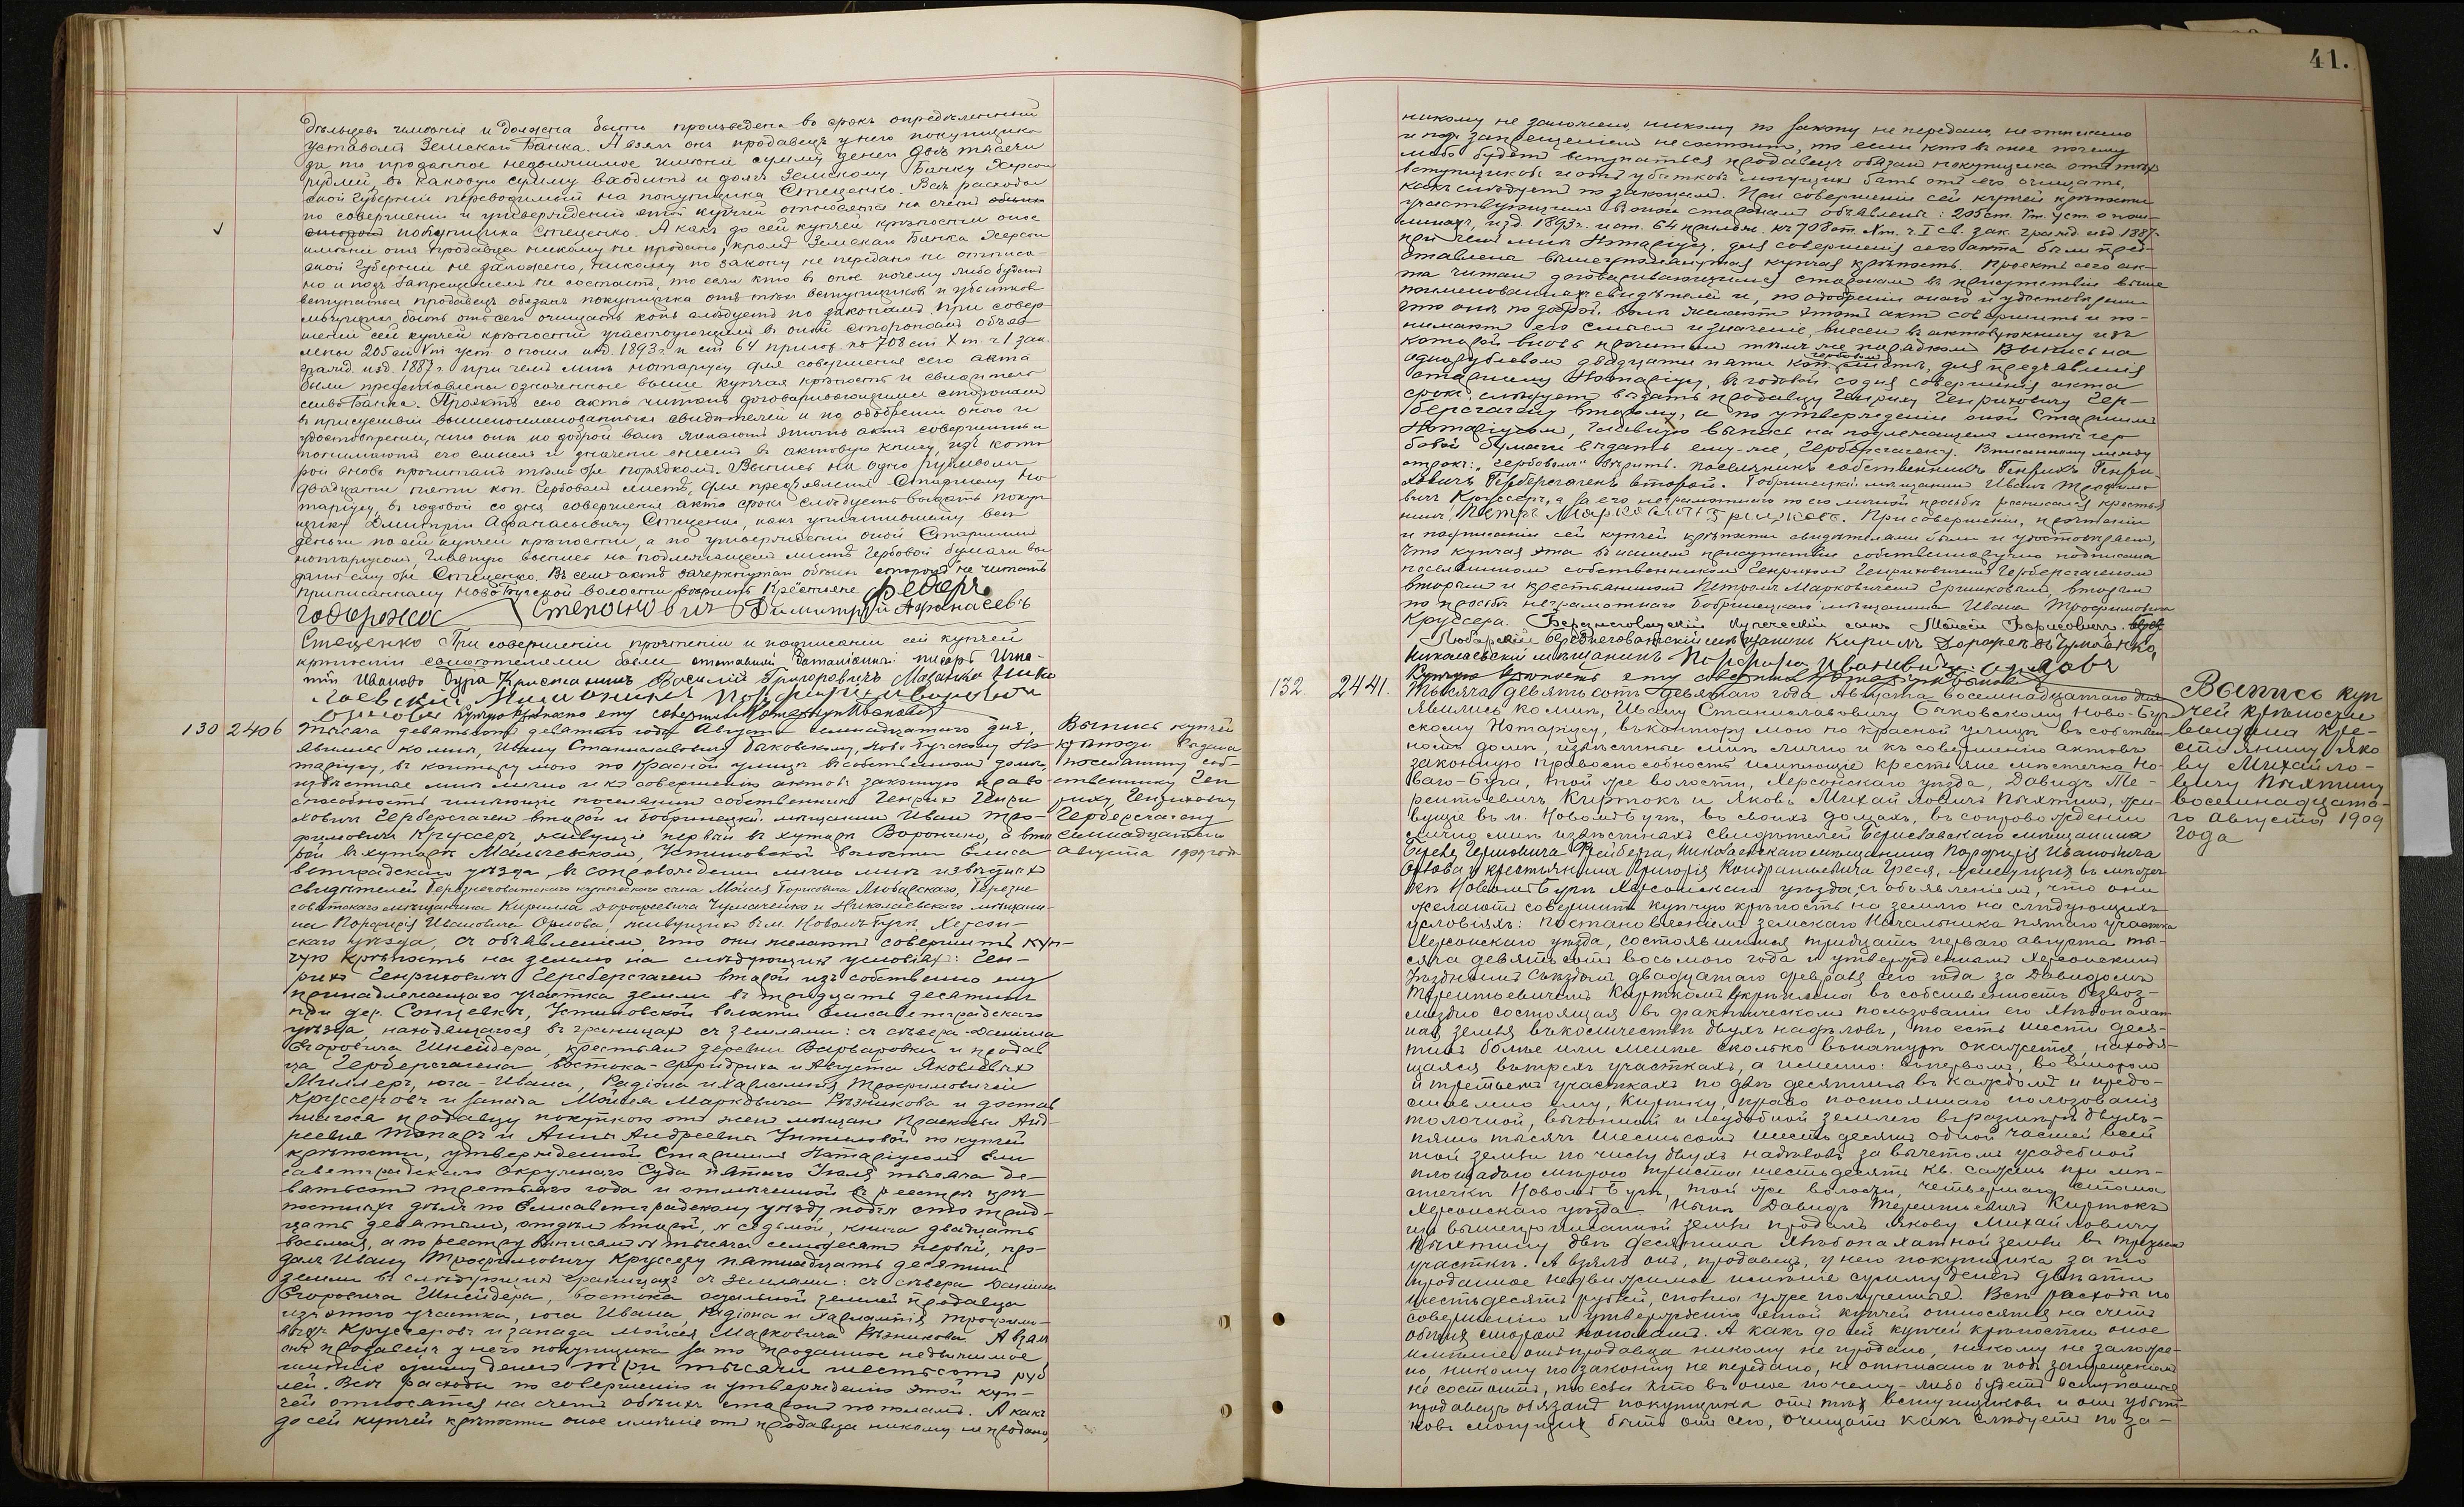 41.
дѣльцевъ имѣніе и должна быть произведена въ срокъ опредѣленный
уставомъ Земскаго Банка. А взялъ онъ продавецъ у него покупщика
за то проданное недвижимое имѣніе сумму денегъ двѣ тысячи
рублей, въ каковую сумму входитъ и долгъ Земскому Банку Херсон
ской Губерніи переводимый на покупщика Стеценко. Всѣ расходы
по совершенію и утвержденію этой купчей относятся на счетъ обоихъ
сторонъ покупщика Стеценко. А какъ до сей купчей крѣпости оное
имѣніе отъ продавца никому не продано, кромѣ Земскаго Банка Херсон
ской Губерніи не заложено, никому по закону не передано не отписа-
но и подъ запрещеніемъ не состоитъ, то если кто въ оное почему либо будетъ
вступаться продавецъ обязанъ покупщика отъ тѣхъ вступщиковъ и убытковъ
могущихъ быть отъ сего очищать какъ слѣдуетъ по законамъ. При совер-
шеніи сей купчей крѣпости участвующимъ въ оной сторонамъ объяв
лены 205 ст Vт уст. о пошл. изд. 1893 г. и ст 64 прилож. къ 708 ст X т. ч 1 зак.
гражд. изд. 1887 г. при чемъ мнѣ нотаріусу для совершенія сего акта
были представлены означенные выше купчая крѣпость и свидѣтель
ство Банка. Проэктъ сего акта читанъ договаривающимся сторонамъ
въ присутствіи вышепоименованныхъ свидѣтелей и по одобреніи оного и
удостовѣреніи, что они по доброй волѣ желаютъ этотъ актъ совершить и
понимаютъ его смыслъ и значеніе внесенъ въ актовую книгу, изъ кото
рой вновь прочитанъ тѣмъ же порядкомъ. Выпись на одно рублевомъ
двадцати пяти коп. Гербовомъ листѣ, для предъявленія Старшему Но
таріусу, въ годовой со дня совершенія акта срокъ слѣдуетъ выдать покуп
щику Дмитрію Афанасьевичу Стеценко, какъ уплатившему всѣ
деньги по сей купчей крѣпости, а по утвержденіи оной Старшимъ
нотаріусомъ, Главную выпись на подлежащемъ листѣ Гербовой бумаги вы
дать ему же Стеценко. Въ семъ актѣ зачеркнутыя обоихъ сторонъ не читать
приписанному Новобугской волости вѣрить. Крестьяне Федоръ
Степановичъ Димитрій Афанасьевъ
Стеценко При совершеніи прочтеніи и подписаніи сей купчей
крѣпости свидѣтелями были отставной баталіонный писарь Игна-
тій Ивановъ Бура Крестьянинъ Василій Григоровичъ Мазанко Нико
лаевскій Мѣщанинъ Порфирій Ивановичъ
Орловъ Купчую крѣпость эту совершилъ Нотаріусъ И. Баковскій
130 2406
Тысяча девятьсотъ девятаго года Августа семнадцатаго дня,
явились ко мнѣ, Ивану Станиславовичу Баковскому, Ново-Бугскому Но-
таріусу, въ контору мою по Красной улицѣ въ собственномъ домѣ,
извѣстные мнѣ лично и къ совершенію актовъ законную право-
способность имѣющіе поселянинъ собственникъ Генрихъ Генри
ховичъ Герберсгагенъ второй и Бобринецкій мѣщанинъ Иванъ Тро-
фимовичъ Круссеръ, живущіе первый въ хуторѣ Воронино, а вто
рой въ хуторѣ Мальчевскомъ, Устиновской волости Елиса
ветградскаго уѣзда, въ сопровожденіи лично мнѣ извѣстныхъ
свидѣтелей Березнеговатскаго купеческаго сына Мойсея Борисовича Любарскаго, Березне
говатскаго мѣщанина Кирилла Дорофеевича Чумаченко и Николаевскаго мѣщани-
на Порфирія Ивановича Орлова, живущихъ въ м. Новомъ-Бугѣ, Херсон-
скаго уѣзда, съ объявленіемъ, что они желаютъ совершить куп-
чую крѣпость на землю на слѣдующихъ условіяхъ: Ген-
рихъ Генриховичъ Герберсгагенъ второй изъ собственно ему
принадлежащаго участка земли въ тридцать десятинъ
при дер. Сонцевкѣ, Устиновской волости Елисаветградскаго
уѣзда, находящагося въ границахъ съ землями: съ сѣвера-Даніила
Егоровича Шнейдера, крестьянъ деревни Варваровки и продав
ца Герберсгагена, востока-Фридриха и Августа Яковлевыхъ
Миллеръ, юга-Ивана, Радіона и Харлампія Трофимовичей
Круссеровъ и запада Мойсея Марковича Рѣзникова и достав
шагося продавцу покупкою отъ женъ мѣщанъ Прасковьи Анд-
реевны Топаръ и Анны Андреевны по купчей
крѣпости, утвержденной Старшимъ Нотаріусомъ Ели
саветградскаго Окружнаго Суда пятаго Іюля тысяча де-
вятьсотъ третьяго года и отмѣченной въ реестрѣ крѣ-
постныхъ дѣлъ по Елисаветградскому уѣзду подъ сто трид-
цать девятымъ, отдѣлъ второй, № седьмой, книга двадцать
восьмая, а по реестру выписямъ № тысяча семьдесятъ первый, про-
далъ Ивану Трофимовичу Круссеру пятнадцать десятинъ
земли въ слѣдующихъ границахъ съ землями: съ сѣвера Даніила
Егоровича Шнейдера, востока остальной земли продавца
изъ этого участка, юга Ивана, Радіона и Харлампія Трофимо-
вичей Круссеровъ и запада Мойсея Марковича Рѣзникова. А взялъ
онъ продавецъ у него покупщика за то проданное недвижимое
имѣніе сумму денегъ три тысячи шестьсотъ руб
лей. Всѣ расходы по совершенію и утвержденію этой куп-
чей относятся на счетъ обоихъ сторонъ пополамъ. А какъ
до сей купчей крѣпости оное имѣніе отъ продавца никому не продано,
Выпись купчей
крѣпости выдана
поселянину соб-
ственнику Ген
риху Генриховичу
Герберсгагену
семнадцатаго
августа 1909 года
никому не заложено, никому по закону не передано, не отписано
и подъ запрещеніемъ не состоитъ, то если кто въ оное почему
либо будетъ вступаться продавецъ обязанъ покупщика отъ тѣхъ
вступщиковъ и отъ убытковъ могущихъ быть отъ сего очищать,
какъ слѣдуетъ по законамъ. При совершеніи сей купчей крѣпости
участвующимъ въ оной сторонамъ объявлены: 205 ст. Vт. уст. о пош-
линахъ, изд. 1893 г. и ст. 64 прилож. къ 708 ст. Xт. ч. I св. зак. гражд. изд 1887 г.
при чемъ мнѣ Нотаріусу, для совершенія сего акта были пред-
ставлена вышеупомянутая купчая крѣпость. Проектъ сего ак-
та читанъ договаривающимся сторонамъ въ присутствіи выше
поименованныхъ свидѣтелей и, по одобреніи онаго и удостовѣреніи
что они по доброй волѣ желаютъ этотъ актъ совершить и по-
нимаютъ его смыслъ и значеніе, внесенъ въ актовую книгу изъ
которой вновь прочитанъ тѣмъ же порядкомъ. Выпись на
гербовомъ
однорублевомъ двадцати пяти коп. листѣ, для предъявленія
старшему Нотаріусу, въ годовой со дня совершенія акта
срокъ, слѣдуетъ выдать продавцу Генриху Генриховичу Гер-
берсгагену второму, а по утвержденіи оной Старшимъ
Нотаріусомъ, Главную выпись на подлежащемъ листѣ гер
бовой бумаги выдать ему-же, Герберсгагену. Вписанному между
строкъ: "гербовомъ" вѣрить. Поселянинъ собственникъ Генрихъ Генри-
ховичъ Герберсгагенъ второй. Бобринецкій мѣщанинъ Иванъ Трофимо-
вичъ Круссеръ, а за его неграмотнаго по его личной просьбѣ росписался крестья
нинъ, Петръ Марковичъ Гришковъ. При совершеніи, прочтеніи
и подписаніи сей купчей крѣпости свидѣтелями были и удостовѣряемъ,
что купчая эта въ нашемъ присутствіи собственноручно подписана
поселяниномъ собственникомъ Генрихомъ Генриховичемъ Герберсгагеномъ
вторымъ и крестьяниномъ Петромъ Марковичемъ Гришковымъ, вторымъ
по просьбѣ неграмотнаго Бобринецкаго мѣщанина Ивана Трофимовича
Круссера. Березнеговатскій купеческій сынъ Мойсей Борисовичъ
Любарскій Березнеговатскій мѣщанинъ Кирилъ Дорофеевъ Чумаченко,
Николаевскій мѣщанинъ Порфирій Ивановичъ Орловъ
Купчую крѣпость эту совершилъ Нотаріусъ И. Баковскій
132. 2441.
Тысяча девятьсотъ девятаго года Августа восемнадцатаго дня
явились ко мнѣ, Ивану Станиславовичу Баковскому Ново-Буг
скому Нотаріусу, въ контору мою по Красной улицѣ въ собствен-
номъ домѣ, извѣстные мнѣ лично и къ совершенію актовъ
законную правоспособность имѣющіе крестьяне мѣстечка Но-
ваго-Буга, той же волости, Херсонскаго уѣзда, Давидъ Те-
рентьевичъ Киртокъ и Яковъ Михайловичъ Пыхтинъ, жи-
вущіе въ м. Новомъ-Бугѣ, въ своихъ домахъ, въ сопровожденіи
лично мнѣ извѣстныхъ свидѣтелей Бериславскаго мѣщанина
Фрейберга, Николаевскаго мѣщанина Порфирія Ивановича
Орлова и крестьянина Григорія Кондратьевича живущихъ въ мѣстеч-
кѣ Новомъ-Бугѣ Херсонскаго уѣзда, съ объявленіемъ, что они
желаютъ совершить купчую крѣпость на землю на слѣдующихъ
условіяхъ: Постановленіемъ земскаго Начальника пятаго участка
Херсонскаго уѣзда, состоявшимся тридцать перваго августа ты-
сяча девятьсотъ восьмого года и утвержденнымъ Херсонскимъ
Уѣзднымъ Съѣздомъ двадцатаго февраля сего года за Давидомъ
Терентьевичемъ Киртокомъ укрѣплена въ собственность безвоз-
мездно состоящая въ фактическомъ пользованіи его хлѣбопахат
ная земля въ количествѣ двухъ надѣловъ, то есть шести деся-
тинъ болѣе или менѣе сколько въ натурѣ окажется, находя-
щаяся въ трехъ участкахъ, а именно: въ первомъ, во второмъ
и третьемъ участкахъ по двѣ десятины въ каждомъ и предо-
ставлено ему, Киртоку, право постояннаго пользованія
толочной, выгонной и неудобной землею въ размѣрѣ двухъ-
пять тысячъ шестьсотъ шестьдесятъ одной частей всей
той земли по числу двухъ надѣловъ за вычетомъ усадебной
площадью мѣрою триста шестьдесятъ кв. сажень при мѣ-
стечкѣ Новомъ-Бугѣ, той же волости, четвертаго стана
Херсонскаго уѣзда. Нынѣ Давидъ Терентьевичъ Киртокъ
изъ вышепрописанной земли продалъ Якову Михайловичу
Пыхтину двѣ десятины хлѣбопахатной земли въ третьемъ
участкѣ. А взялъ онъ, продавецъ, у него покупщика за то
проданное недвижимое имѣніе сумму денегъ двѣсти
шестьдесятъ рублей, сполна уже полученные. Всѣ расходы по
совершенію и утвержденію этой купчей относятся на счетъ
обоихъ сторонъ пополамъ. А какъ до сей купчей крѣпости оное
имѣніе отъ продавца никому не продано, никому не заложе-
но, никому по закону не передано, не отписано и подъ запрещеніемъ
не состоитъ, то если кто въ оное почему-либо будетъ вступаться
продавецъ обязанъ покупщика отъ тѣхъ вступщиковъ и отъ убыт-
ковъ могущихъ быть отъ сего, очищать какъ слѣдуетъ по за-
Выпись куп
чей крѣпости
выдана кре-
стьянину Яко
ву Михайло-
вичу Пыхтину
восемнадцата-
го августа 1909
года